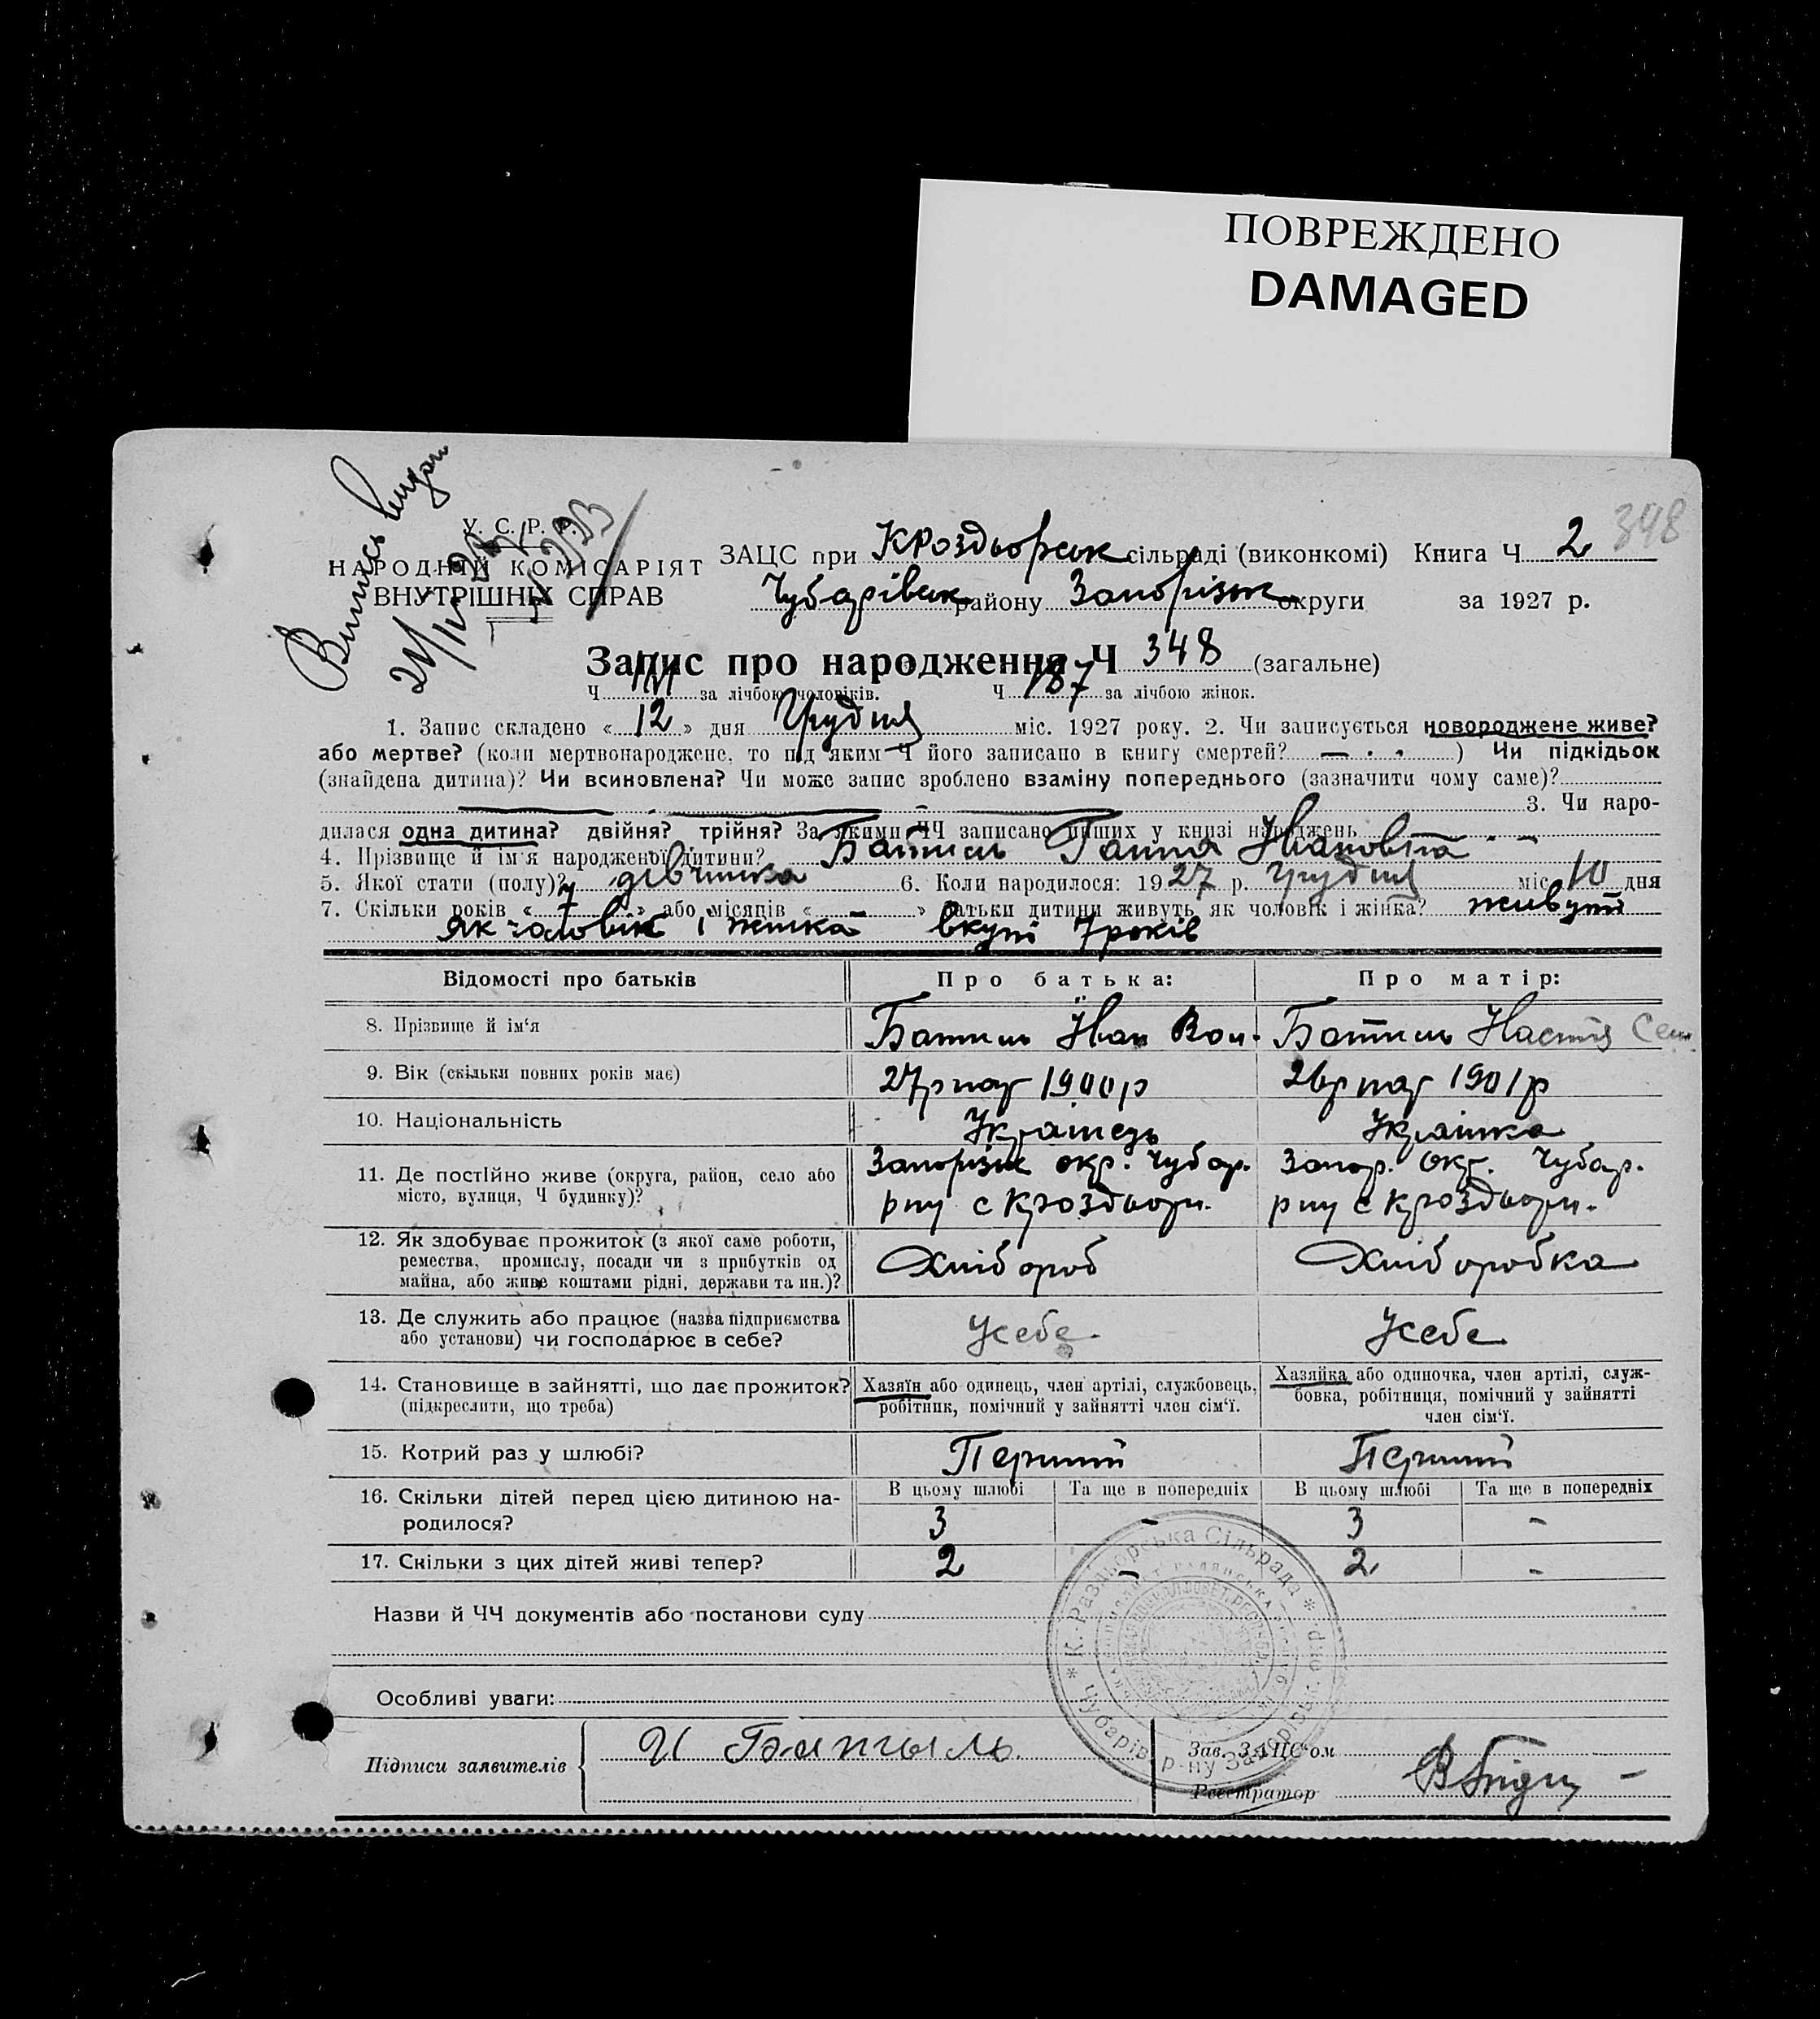 ПОВРЕЖДЕНО
DAMAGED
348
Випись видан
У. С. Р. Р.
НАРОДНІЙ КОМІСАРІЯТ
ВНУТРІШНІХ СПРАВ
ЗАЦС при Кроздьорськ сільраді (виконкомі) Книга Ч 2
Чубарівськ району Запорізьк округи за 1927 р.
Запис про народження Ч 348 (загальне)
Ч за лічбою чоловіків. Ч 187 за лічбою жінок.
1. Запис складено « 12 » дня Грудня міс. 1927 року. 2. Чи записується новороджене живе?
або мертве? (коли мертвонароджене, то під яким Ч його записано в книгу смертей? — ) Чи підкідьок
(знайдена дитина)? Чи всиновлена? Чи може запис зроблено взаміну попереднього (зазначити чому саме)?
3. Чи наро-
дилася одна дитина? двійня? трійня? За якими ЧЧ записано інших у книзі народжень
4. Прізвище й ім'я народженої дитини? Батиль Ганна Івановна
5. Якої стати (полу)? дівчинка 6. Коли народилося: 1927 р. Грудня міс. 10 дня
7. Скільки років « 7 » або місяців « » батьки дитини живуть як чоловік і жінка? живуть
як чоловік і жінка вкупі 7 років
Відомості про батьків Про батька: Про матір:
8. Прізвище й ім'я Батиль Іван Батиль Настя Сем
9. Вік (скільки повних років має) 27р нар 1900р 26р нар 1901р
10. Національність Українець Українка
11. Де постійно живе (округа, район, село або місто, вулиця, Ч будинку)? Запорізьк окр. Чубар. Запор. окр. Чубар.
рну с Кроздьори. рну с Кроздьори.
12. Як здобуває прожиток (з якої саме роботи,
ремества, промислу, посади чи з прибутків од
майна, або живе коштами рідні, держави та ин.)? Хлібороб Хліборобка
13. Де служить або працює (назва підприємства
або установи) чи господарює в себе? Усебе Усебе
14. Становище в зайнятті, що дає прожиток?
(підкреслити, що треба)
Хазяїн або одинець, член артілі, службовець,
робітник, помічний у зайнятті член сім'ї.
Хазяйка або одиночка, член артілі, служ-
бовка, робітниця, помічний у зайнятті
член сім'ї.
15. Котрий раз у шлюбі? Перший Перший
В цьому шлюбі Та ще в попередніх В цьому шлюбі Та ще в попередніх
16. Скільки дітей перед цією дитиною на-
родилося? 3 - 3 -
17. Скільки з цих дітей живі тепер? 2 - 2 -
Назви й ЧЧ документів або постанови суду
Особливі уваги:
Підписи заявителів И Батыль
Зав. ЗАЦС'ом
Реєстратор
* К.-Раздьорська Сільрада * Чубарів. р-ну Запорізьк. окр.